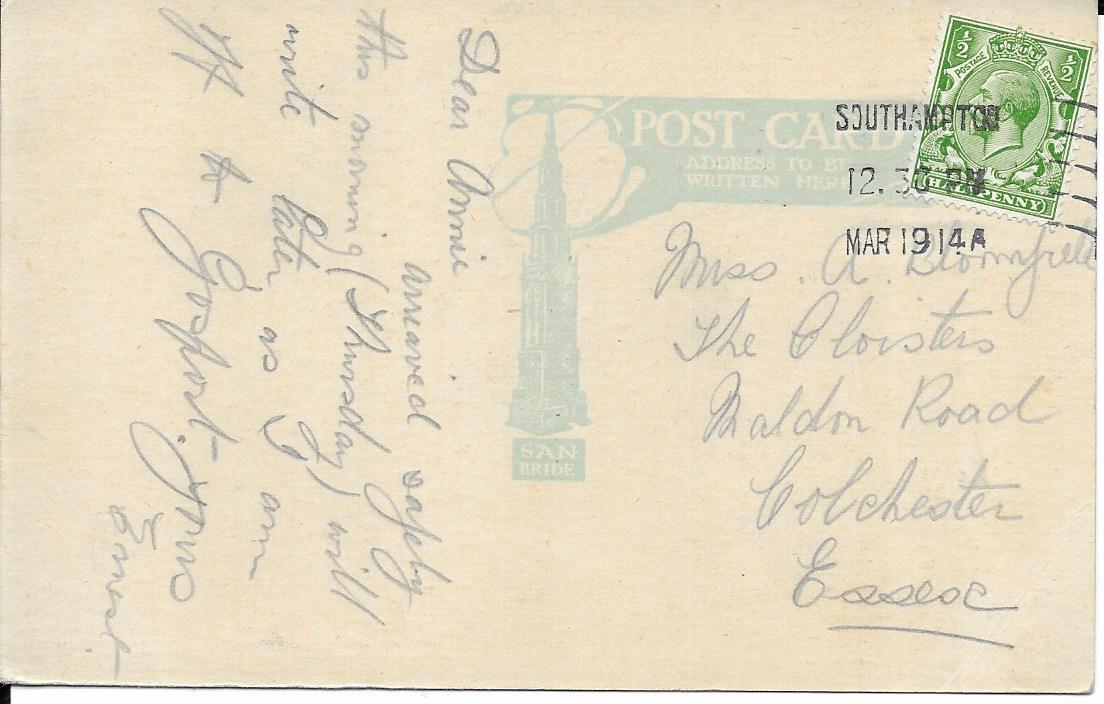 Dear Annie
arrieved safely
this evening (Thursday) will
write later as I am
off to Gosport. Yrs
Ernest
POST CARD
ADDRESS TO BE
WRITTEN HERE
SAN
BRIDE
½ ½
POSTAGE REVENUE
HALFPENNY
SOUTHAMPTON
12.30 PM
MAR 19 14 A
Miss. A. Blomfield
The Cloisters
Maldon Road
Colchester
Essex